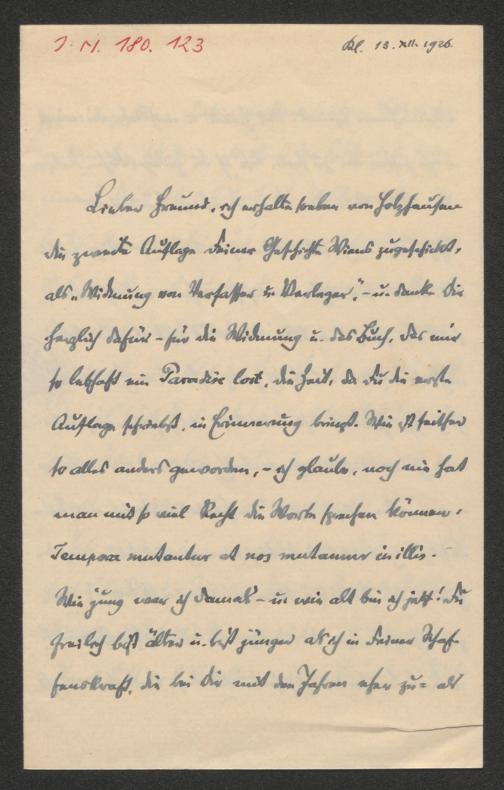 J. N. 180. 123
Kl. 13. XII. 1926.
Lieber Freund, ich erhalte soeben von Holzhausen
die zweite Auflage Deiner Geschichte Wiens zugeschickt,
als „Widmung von Verfasser u. Verleger", – u. danke Dir
herzlich dafür – für die Widmung u. das Buch, das mir
so lebhaft ein Paradise lost, die Zeit, da Du die erste
Auflage schriebst, in Erinnerung bringt. Wie ist seither
so alles anders geworden, – ich glaube, noch nie hat
man mit so viel Recht die Worte sprechen können:
Tempora mutantur et nos mutamur in illis. –
Wie jung war ich damals – u. wie alt bin ich jetzt! Du
freilich bist älter u. bist jünger als ich in Deiner Schaf-
fenskraft, die bei Dir mit den Jahren eher zu= als